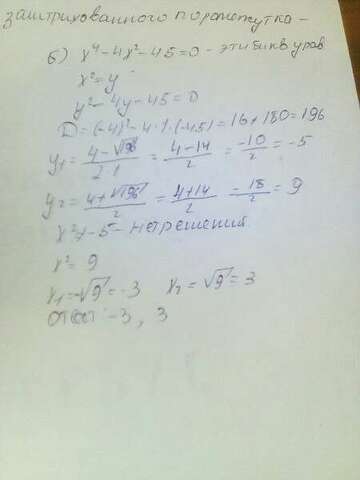 заштрихованного промежутка –
б) x⁴ – 4x² – 45 = 0 – эти бикв. урав.
x² = y
y² – 4y – 45 = 0
D = (–4)² – 4 · 1 · (–45) = 16 + 180 = 196
y₁ = (4 – √196)/(2 · 1) = (4 – 14)/2 = –10/2 = –5
y₂ = (4 + √196)/2 = (4 + 14)/2 = 18/2 = 9
x² ≠ –5 – нет решений.
x² = 9
x₁ = –√9 = –3 x₂ = √9 = 3
Ответ: –3, 3